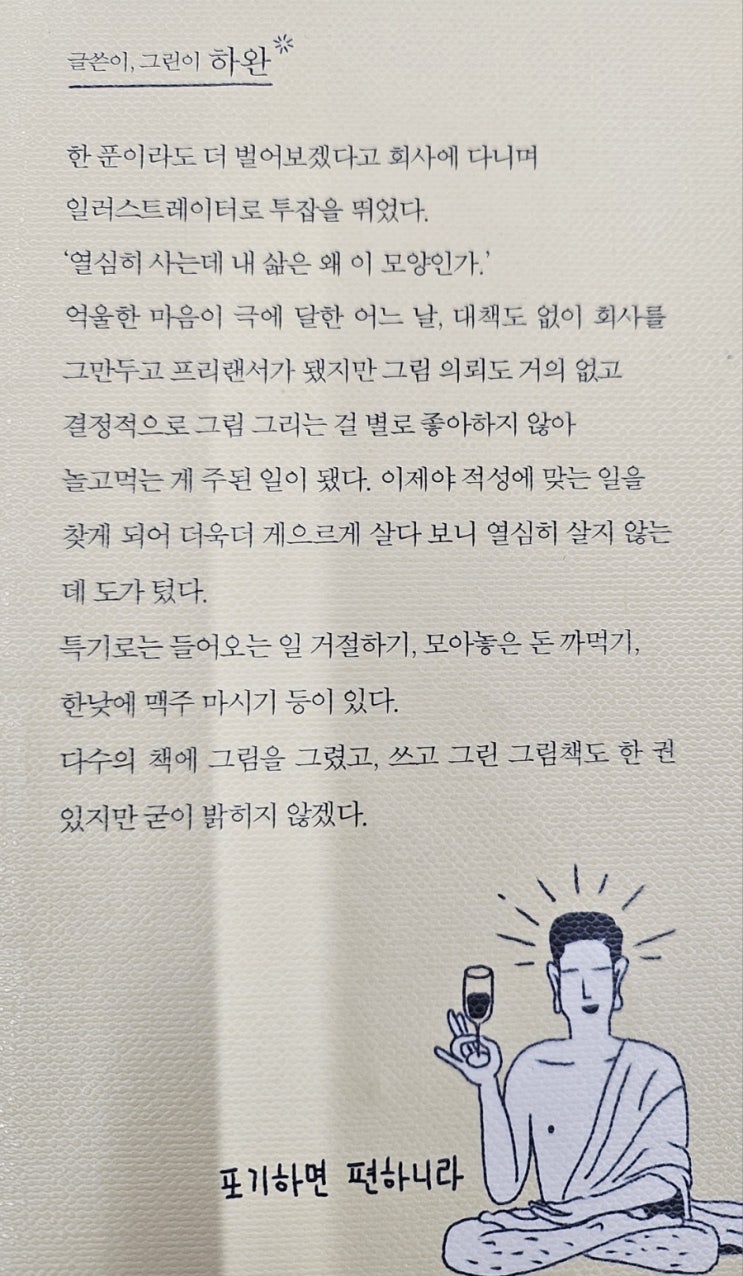 글쓴이, 그린이 하완
한 푼이라도 더 벌어보겠다고 회사에 다니며
일러스트레이터로 투잡을 뛰었다.
‘열심히 사는데 내 삶은 왜 이 모양인가.’
억울한 마음이 극에 달한 어느 날, 대책도 없이 회사를
그만두고 프리랜서가 됐지만 그림 의뢰도 거의 없고
결정적으로 그림 그리는 걸 별로 좋아하지 않아
놀고먹는 게 주된 일이 됐다. 이제야 적성에 맞는 일을
찾게 되어 더욱더 게으르게 살다 보니 열심히 살지 않는
데 도가 텄다.
특기로는 들어오는 일 거절하기, 모아놓은 돈 까먹기,
한낮에 맥주 마시기 등이 있다.
다수의 책에 그림을 그렸고, 쓰고 그린 그림책도 한 권
있지만 굳이 밝히지 않겠다.
포기하면 편하니라